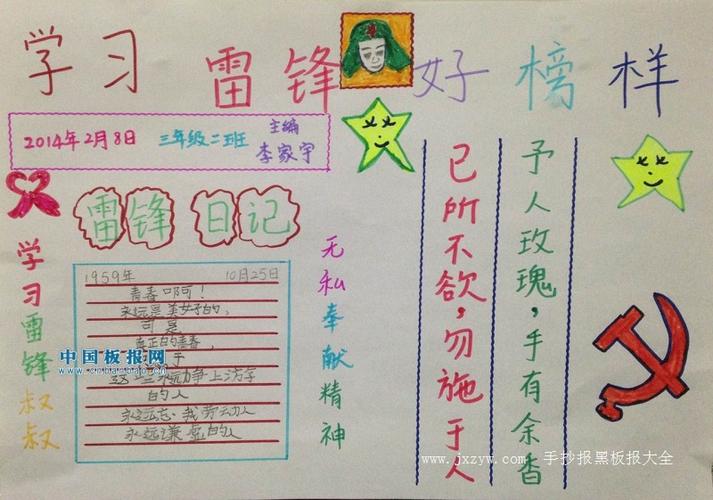 学习雷锋好榜样
2014年2月8日 三年级二班 主编 李家宇
雷锋日记
学习雷锋叔叔
1959年 10月25日
青春
永远是美好的,
可是
真正的青春,
的人
永远谦虚的人
无私奉献精神
已所不欲,勿施于人
予人玫瑰,手有余香
中国板报网
www.jxzyw.com 手抄报黑板报大全